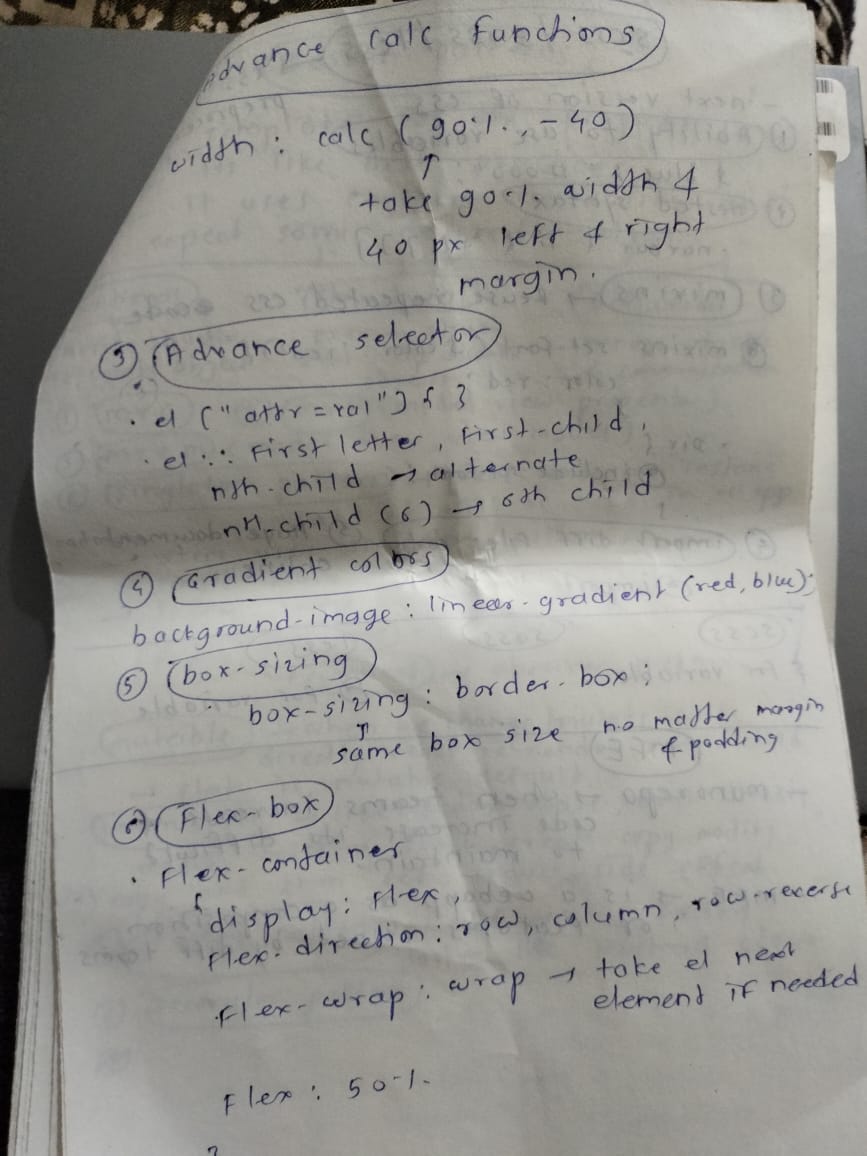 advance calc functions
width : calc ( 90%, -40 )
↑
take 90% width &
40 px left & right
margin.
③ Advance selector
• el ["attr = val"] { }
• el :: First letter, First-child,
nth-child → alternate
nth-child (6) → 6th child
④ Gradient colors
background-image : linear-gradient (red, blue);
⑤ box-sizing
box-sizing : border-box ;
↑
same box size no matter margin
& padding
⑥ Flex-box
• Flex-container
{ display : Flex,
Flex-direction : row, column, row-reverse
Flex-wrap : wrap → take el next
element if needed
Flex : 50%
}